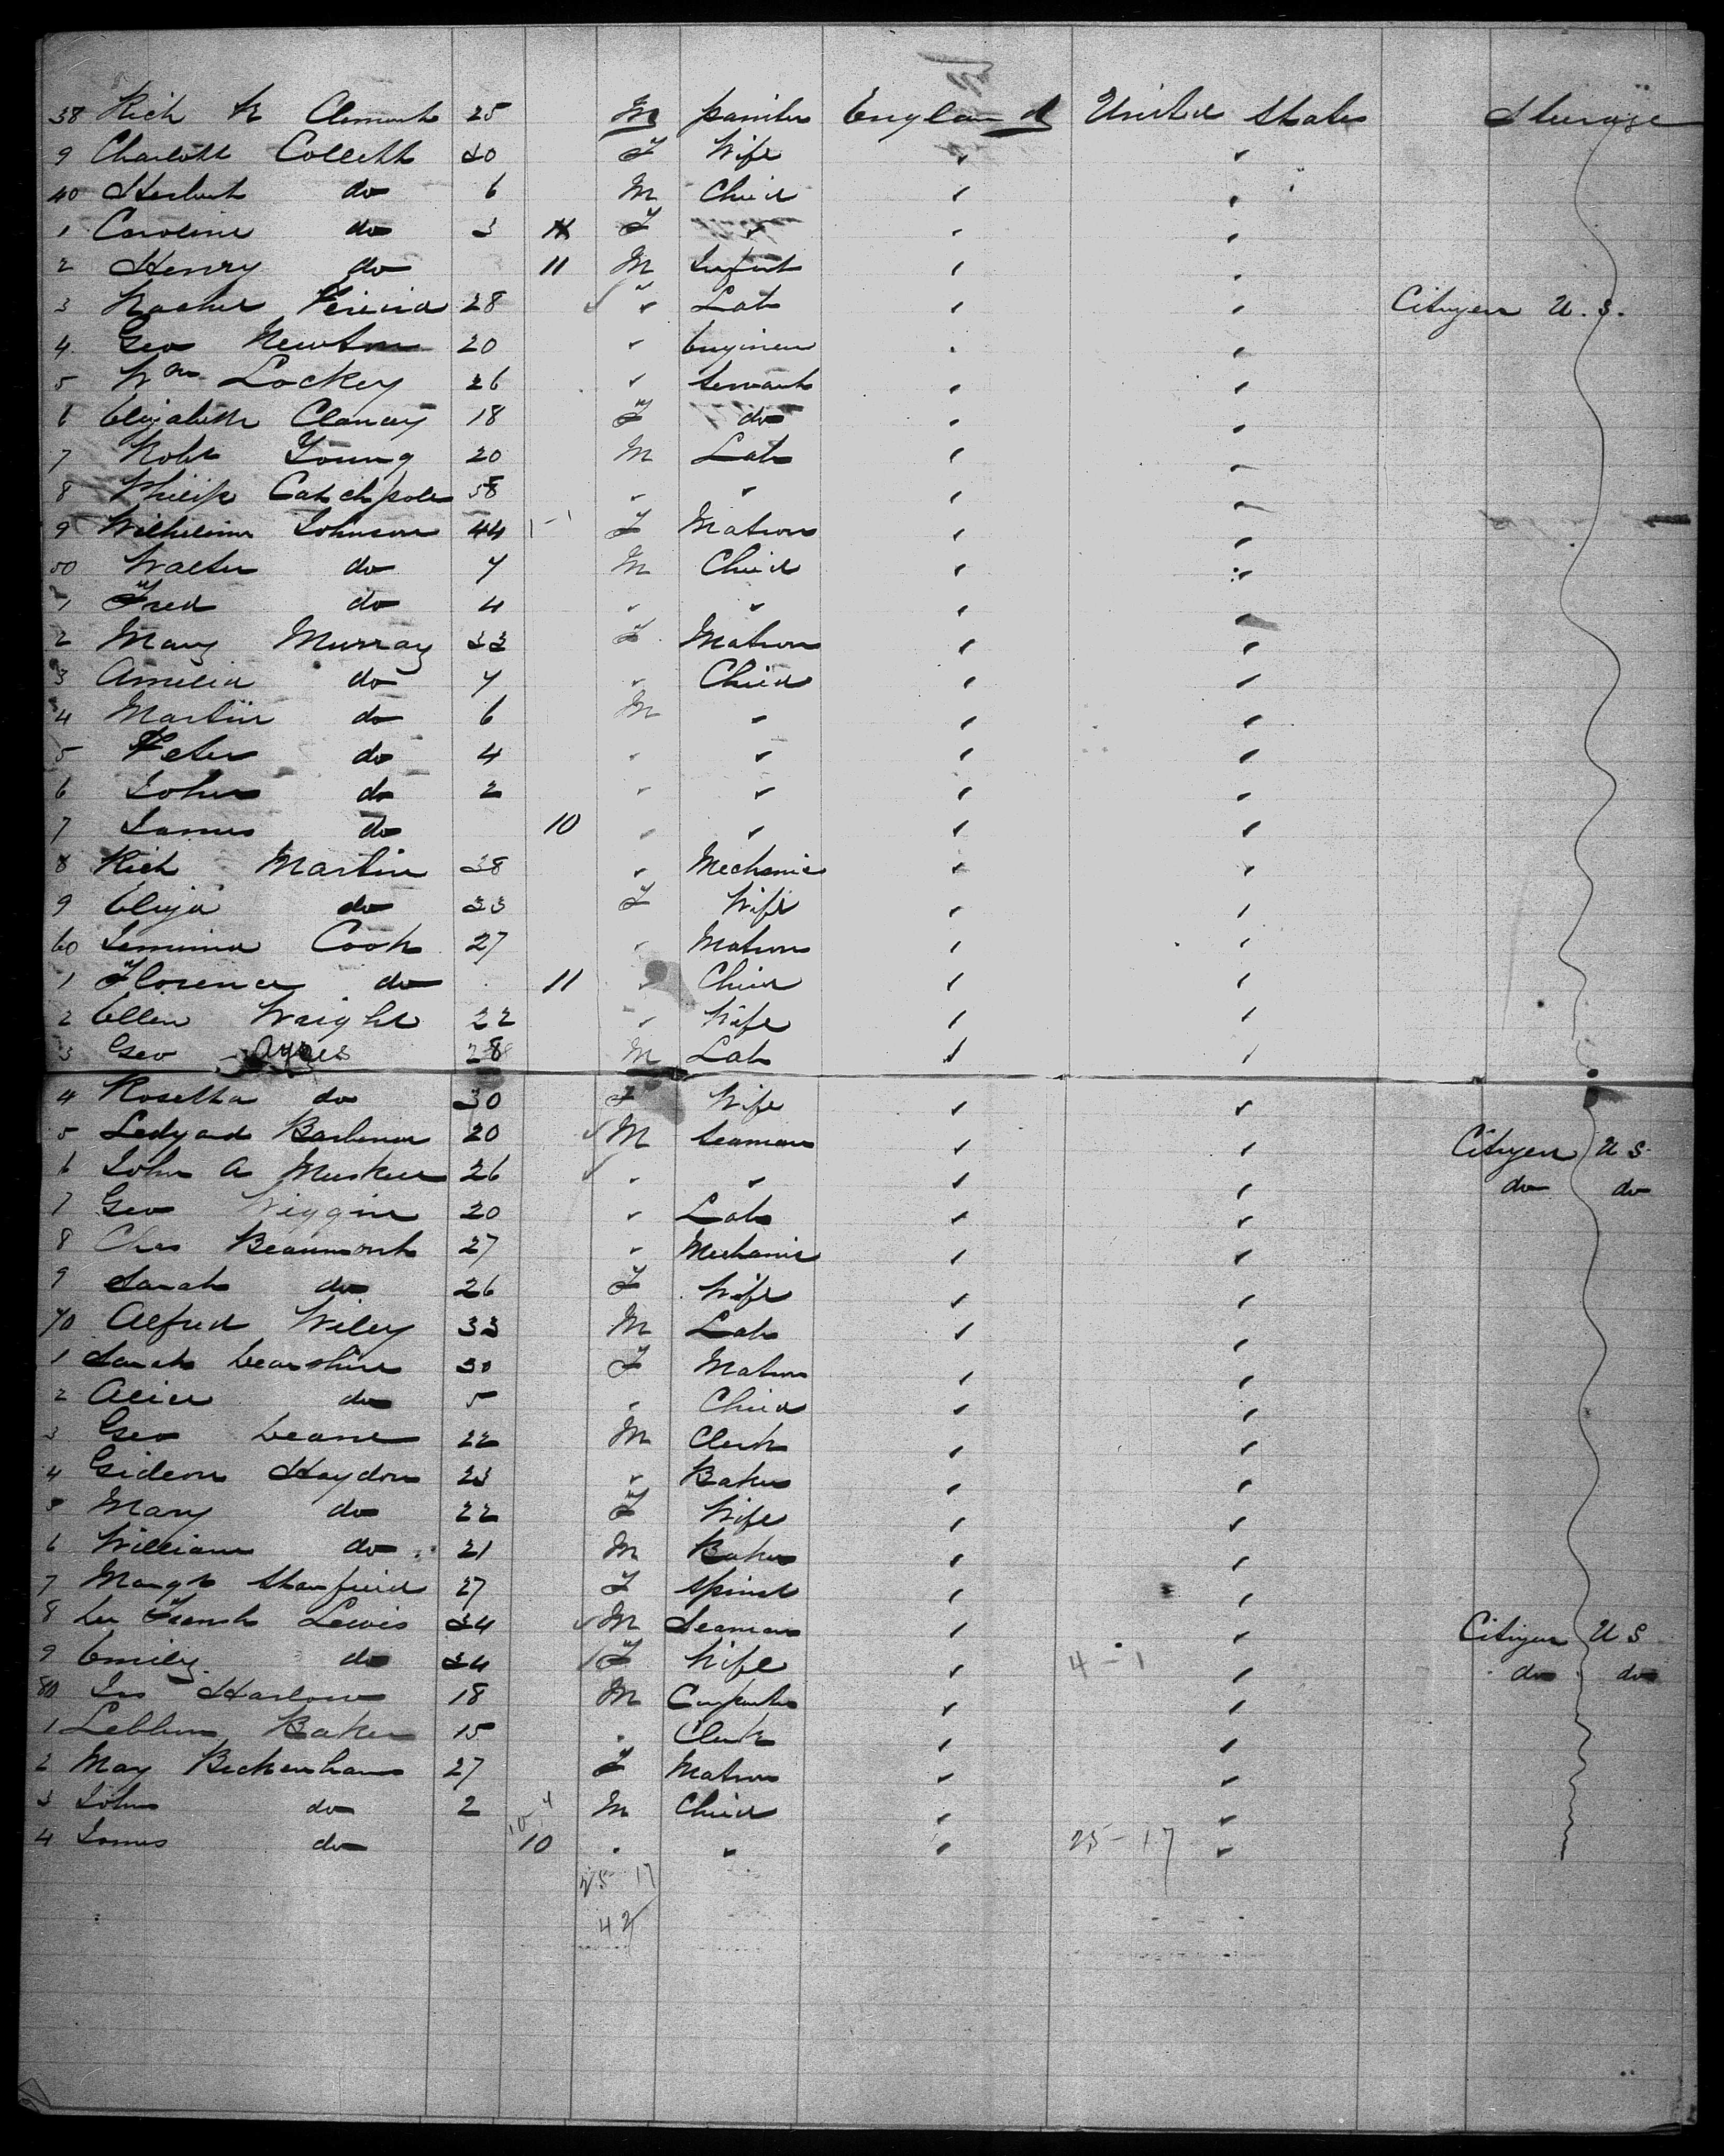 38 Rich K Clements 25 M painter England United States Steerage
9 Charlotte Collett 30 F Wife " "
40 Herbert do 6 M Child " "
1 Caroline do 3 F " " "
2 Henry do 11 M Infant " "
3 28 " Lab " " Citizen U.S.
4 Geo Newton 20 " Engineer " "
5 Wm Lockey 26 " Servant " "
6 Elizabeth Clancy 18 F do " "
7 Robt Young 20 M Lab " "
8 Philip Catchpole 58 " " " "
9 Wilhelmina Johnson 44 F Matron " "
50 Walter do 7 M Child " "
1 Fred do 4 " " " "
2 Mary Murray 33 F Matron " "
3 Amelia do 7 " Child " "
4 Martin do 6 M " " "
5 Peter do 4 " " " "
6 John do 2 " " " "
7 James do 10 " " " "
8 Rich Martin 38 " Mechanic " "
9 Eliza do 33 F Wife " "
60 Jemima Cook 27 " Matron " "
1 Florence do 11 " Child " "
2 Ellen Wright 22 " Wife " "
3 Geo Ayres 28 M Lab " "
4 Rosetta do 30 F Wife " "
5 Ledyard 20 M Seaman " " Citizen U S.
6 John A 26 " " " " do do
7 Geo Wiggins 20 " Lab " "
8 Chas Beaumont 27 " Mechanic " "
9 Sarah do 26 F Wife " "
70 Alfred Wiley 33 M Lab " "
1 Sarah 30 F Matron " "
2 Alice do 5 " Child " "
3 Geo Deane 22 M Clerk " "
4 Gideon Haydon 23 " Baker " "
5 Mary do 22 F Wife " "
6 William do 21 M Baker " "
7 Margt Stanfield 27 F Spinst " "
8 Lewis 34 M Seaman " " Citizen U S
9 Emily do 34 F Wife " 4-1 " do do
80 Jas Harlow 18 M Carpenter " "
1 Baker 15 " Clerk " "
2 May Beckenham 27 F Matron " "
3 John do 2 M Child " "
4 James do 10 " " " 25-17 "
25 17
42